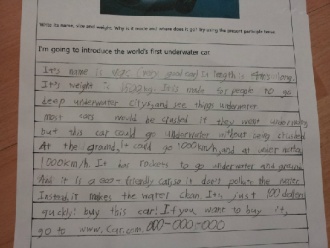 Write its name, size and weight. Why is it made and where does it go? Try using the present participle tense
I'm going to introduce the world's first underwater car.
It's name is (very good car) It length is long.
It's weight is 1500kg. It is made for people to go
deep underwater city, and see things underwater
most cars would be crushed if they went underwater
but this car could go underwater without being crushed
At the ground, it could go 1000km/h, and at under water,
1000km/h. It has rockets to go underwater and ground
And it is eco-friendly cause it don't pollute the water
Instead it makes the water clean. It's just 100 dollars
quickly! buy this car! If you want to buy it,
go to www. car.com. 000-000-0000